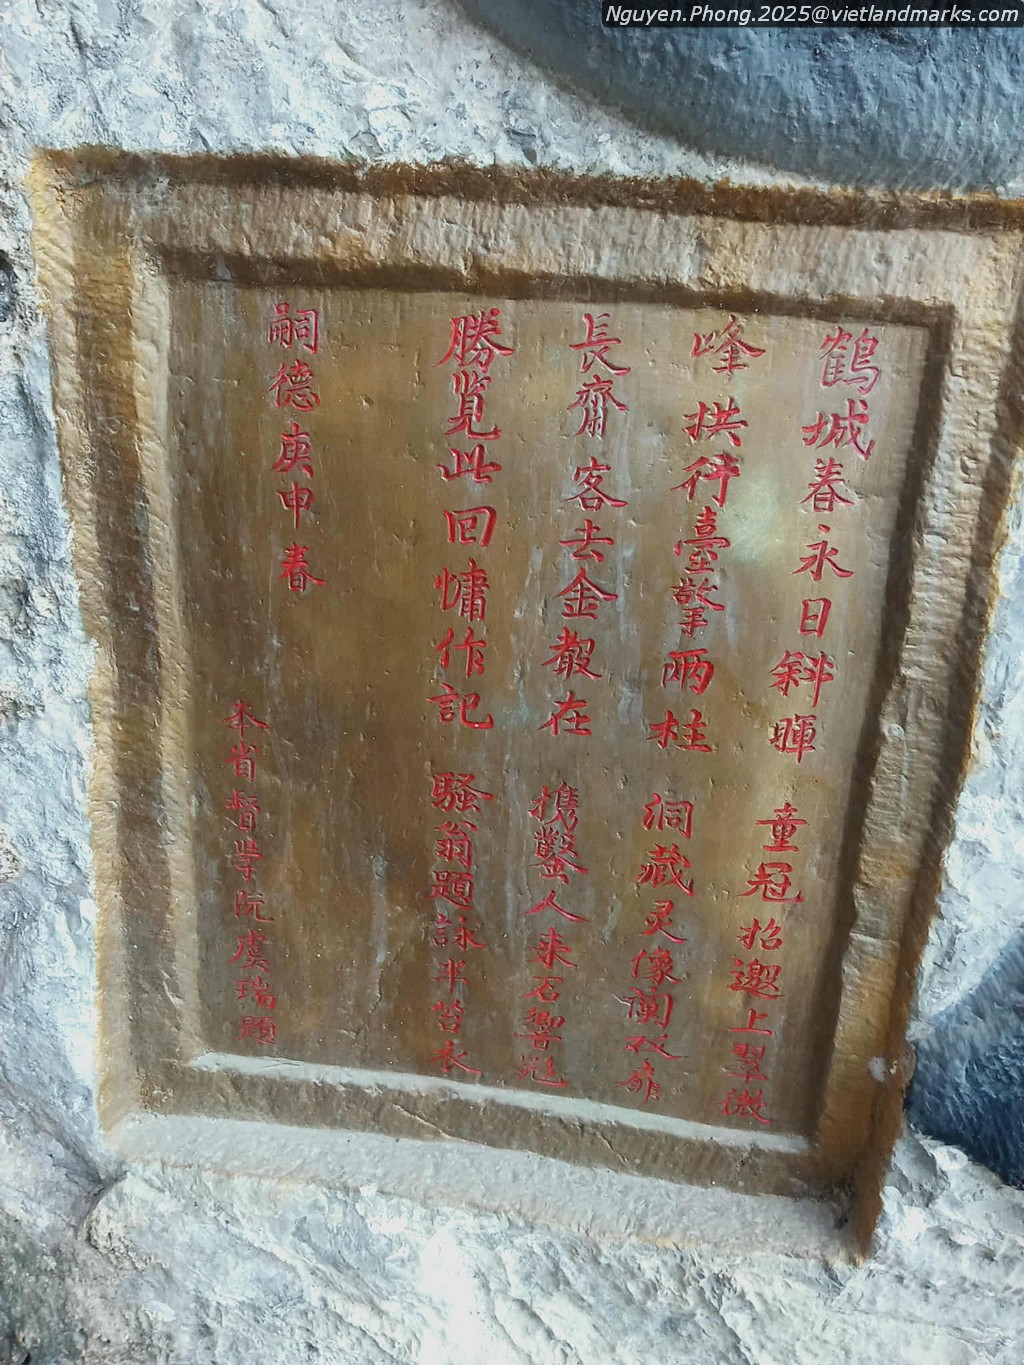 Nguyen.Phong.2025@vietlandmarks.com
鶴城春永日斜暉 童冠招邀上翠微
峰拱行臺擎兩柱 洞藏灵像闌双扉
長齋客去金散在 携鑿人来石響
勝覧此回慵作記 騷翁題詠半苔衣
嗣德庚申春
本省督学阮虞瑞題